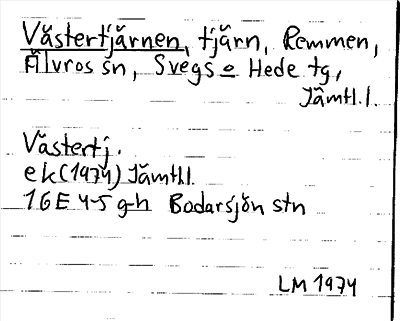 Västertjärnen, tjärn, Remmen,
Älvros sn, Svegs o Hede tg,
Jämtl.l.
Västertj.
ek(1974) Jämtl.l.
16E 4-5 g-h Bodarsjön stn
LM 1974